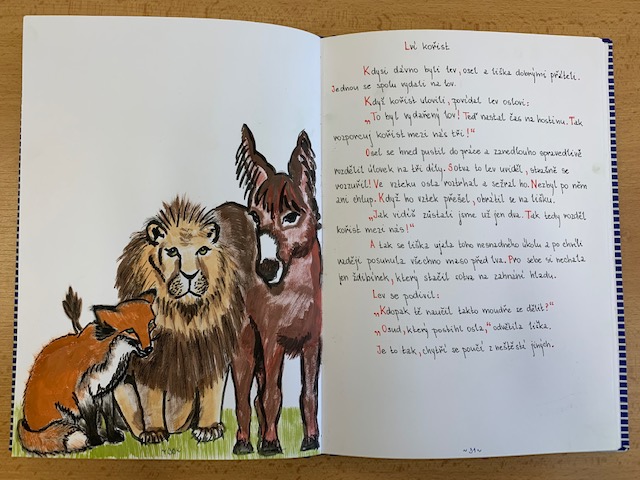 Lví kořist
Kdysi dávno byli lev, osel a liška dobrými přáteli.
Jednou se spolu vydali na lov.
Když kořist ulovili, povídal lev oslovi:
„To byl vydařený lov! Teď nastal čas na hostinu. Tak
rozporcuj kořist mezi nás tři!"
Osel se hned pustil do práce a zanedlouho spravedlivě
rozdělil úlovek na tři díly. Sotva to lev uviděl, strašně se
rozzuřil! Ve vzteku osla roztrhal a sežral ho. Nezbyl po něm
ani chlup. Když ho vztek přešel, obrátil se na lišku.
„Jak vidíš zůstali jsme už jen dva. Tak tedy rozděl
kořist mezi nás!"
A tak se liška ujala toho nesnadného úkolu a po chvíli
raději posunula všechno maso před lva. Pro sebe si nechala
jen ždibínek, který stačil sotva na zahnání hladu.
Lev se podivil:
„Kdopak tě naučil takto moudře se dělit?"
„Osud, který postihl osla," odvětila liška.
Je to tak, chytří se poučí z neštěstí jiných.
~31~